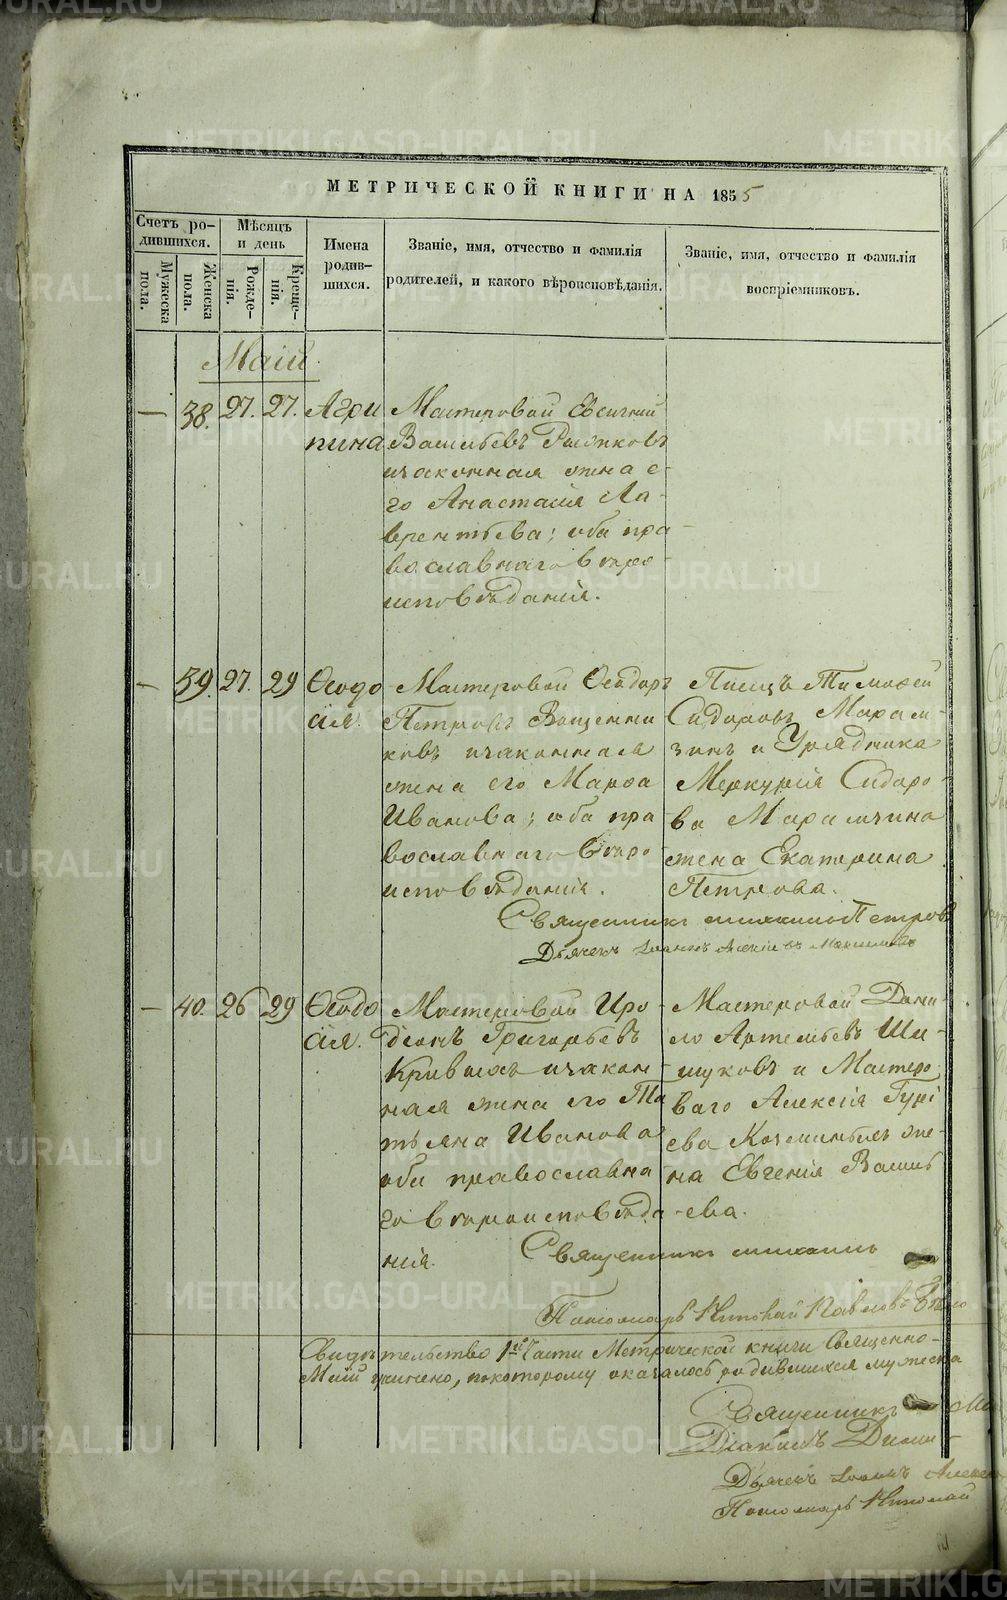 МЕТРИЧЕСКОЙ КНИГИ НА 1855
Счетъ ро-
дившихся.
Мужеска
пола.
Женска
пола.
Мѣсяцъ
и день
Рожде-
нія.
Креще-
нія.
Имена
родив-
шихся.
Званіе, имя, отчество и фамилія
родителей, и какого вѣроисповѣданія.
Званіе, имя, отчество и фамилія
воспріемниковъ.
Маій.
— 38. 27. 27. Агри
пина
Мастеровой Евсигній
Васильевъ
изаконная жена е-
го Анастасія Ла-
врентьева; оба пра-
вославнаго вѣро-
исповѣданія.
— 39. 27. 29 Ѳеодо
сія.
Мастеровой Ѳеодоръ
Петровъ Вощенни
ковъ изаконная
жена его Марѳа
Иванова; оба пра
вославнаго вѣро-
исповѣданія.
Писецъ Тимоѳей
Сидоровъ Марам-
зинъ и Урядника
Меркурія Сидоро-
ва Марамзина
жена Екатерина
Петрова.
Священникъ Петровъ
Дьячекъ Іоаннъ
— 40. 26 29 Ѳеодо
сія.
Мастеровой Иро-
діонъ Григорьевъ
изакон-
ная жена его Та
тьяна Иванова
оба православна
го вѣроисповѣда-
нія.
Мастеровой Дани-
ло Артемьевъ Ши-
шуковъ и Мастеро
ваго Алексія Гурі
ева Козминыхъ же-
на Евгенія Василь
ева.
Священникъ
Пономарь Николай Павловъ
Свидѣтельство 1й Части Метрической книги Священно-
Маій учинено, покоторому оказалось родившихся мужеска
Священникъ
Діаконъ Дими-
Дьячекъ Іоаннъ Алексѣ
Пономарь Николай
METRIKI.GASO-URAL.RU